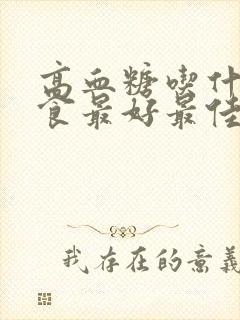 高血糖喫什
食最好最佳
我存在的意義